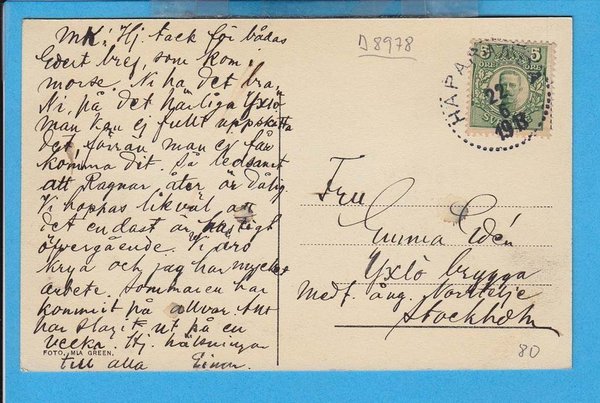 MK! Hj. tack för bådas
Edert brev, som kom i
morse. Ni ha det bra,
Ni, på det härliga Yxlö
man kan ej fullt uppskatta
det förrän man ej får
komma dit. Så ledsamt
att Ragnar åter är dålig.
Vi hoppas likväl att
det endast är hastigt
övergående. Vi äro
krya och jag har mycket
arbete. Sommaren har
kommit på allvar. Allt
har slagit ut på en
vecka. Hj. hälsningar
till alla Einar.
FOTO. MIA GREEN.
D8978
5 5
ÖRE ÖRE
HAPARANDA
22
6
1918
Fru
Emma Edén
Yxlö brygga
Medf. ång. Norrtelje
Stockholm
80